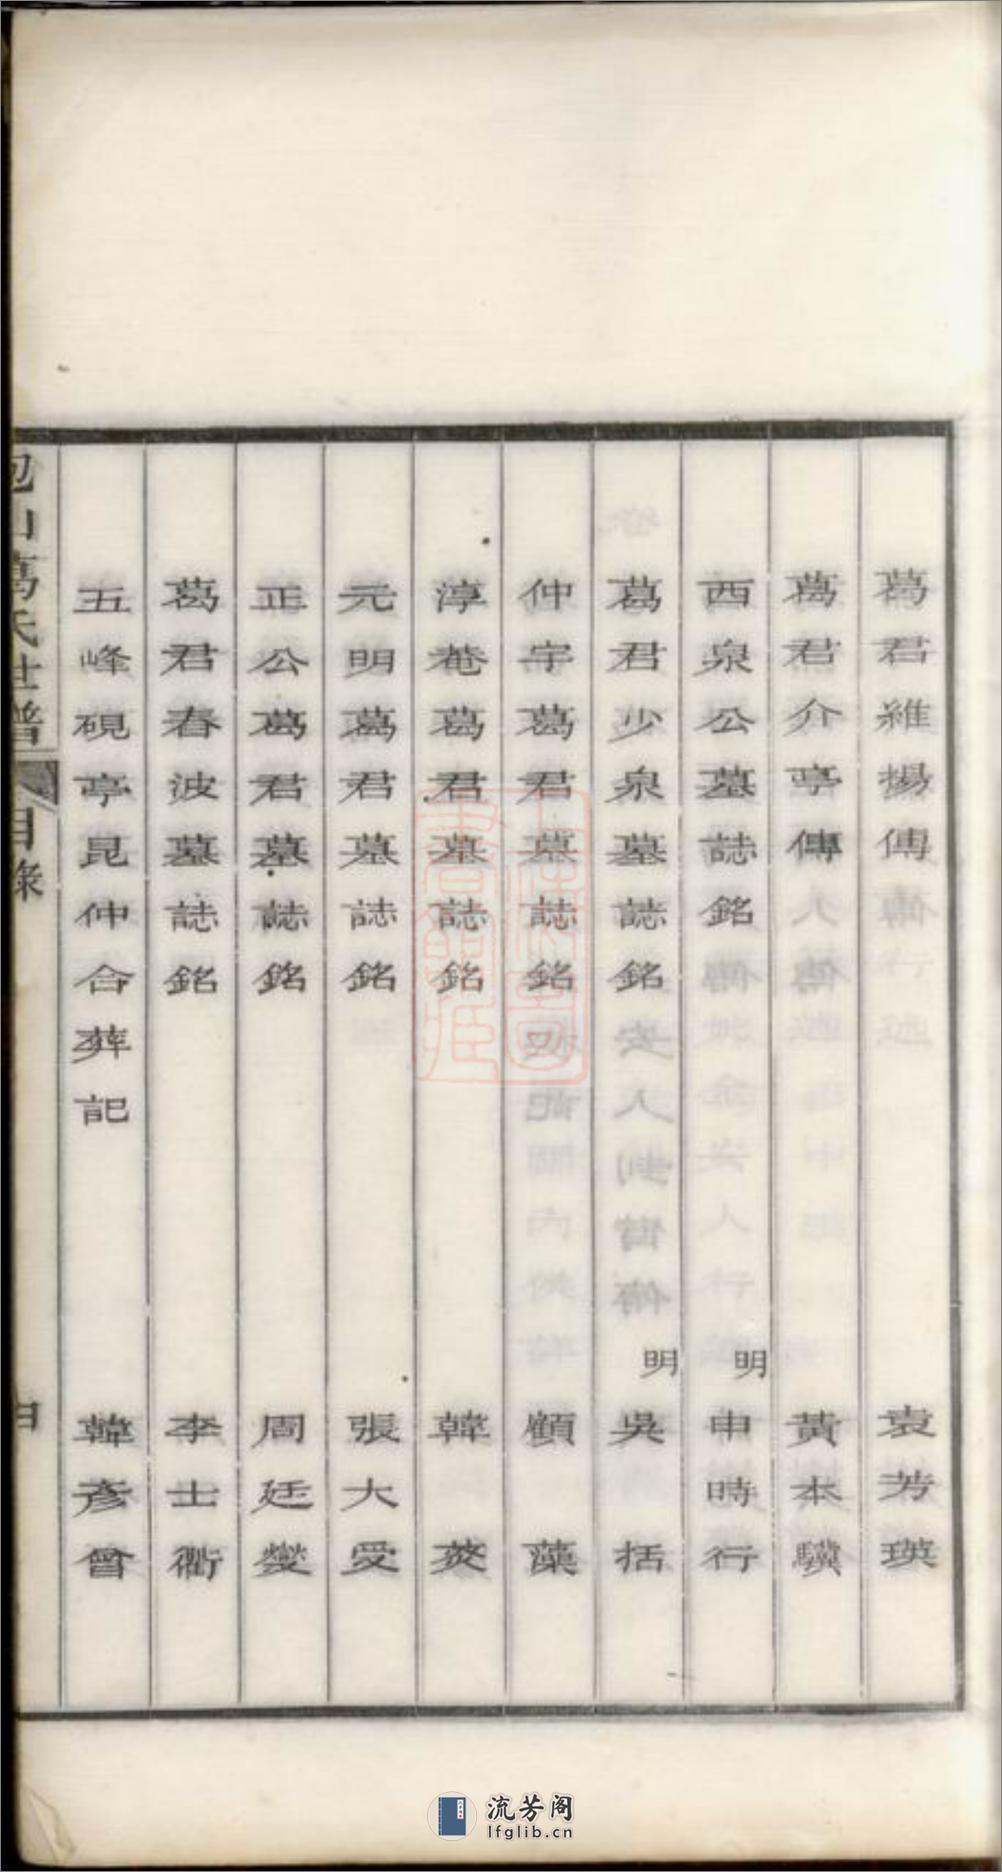 葛君維揚傳 袁芳瑛
葛君介亭傳 黃本驥
西泉公墓誌銘 明 申時行
葛君少泉墓誌銘 明 吳括
仲宇葛君墓誌銘 顧藻
淳菴葛君墓誌銘 韓菼
元明葛君墓誌銘 張大受
正公葛君墓誌銘 周廷燮
葛君春波墓誌銘 李士衢
五峰硯亭昆仲合葬記 韓彥曾
包山葛氏世譜 目錄
流芳阁
lfglib.cn